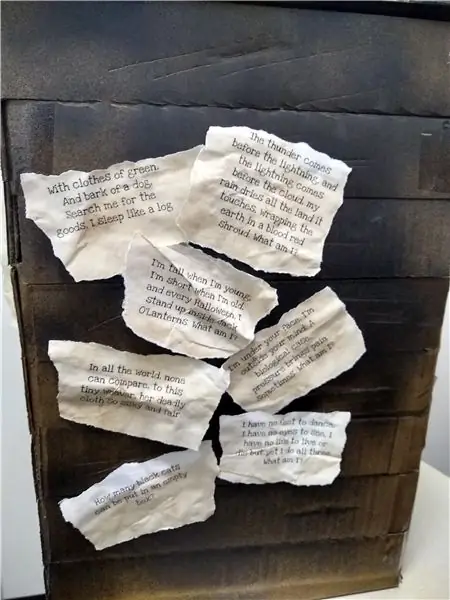 With clothes of green,
And bark of a dog,
Search me for the
goods, I sleep like a log
The thunder comes
before the lightning, and
the lightning comes
before the cloud. my
rain dries all the land it
touches, wrapping the
earth in a blood red
shroud. What am I?
I'm tall when I'm young,
I'm short when I'm old,
and every Halloween, I
stand up inside Jack
O'Lanterns. What am I?
I'm under your face, I'm
outside your mind. A
biological case,
pressure brings pain
sometimes. What am I?
In all the world, none
can compare, to this
tiny weaver, her deadly
cloth so silky and fair
I have no feet to dance,
I have no eyes to see, I
have no life to live or
die but yet I do all three.
What am I?
How many black cats
can be put in an empty
box?